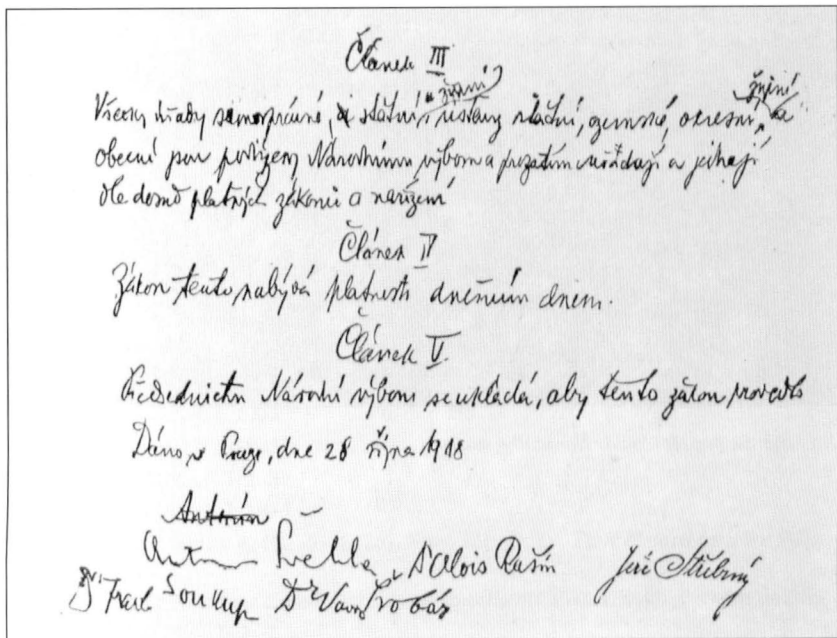 Článek III
Všecky úřady samosprávné, státní, ústavy státní, zemské, okresní, a
obecní jsou podřízeny Národnímu výboru a prozatím úřadují a jednají
dle dosud platných zákonů a nařízení
Článek IV
Zákon tento nabývá platnosti dnešním dnem.
Článek V.
Předsednictvu Národní výboru se ukládá, aby tento zákon provedlo
Dáno v Praze, dne 28 října 1918
Antonín
Antonín Švehla Dr Alois Rašín Jiří Stříbrný
Dr Frant Soukup Dr Vavro Šrobár